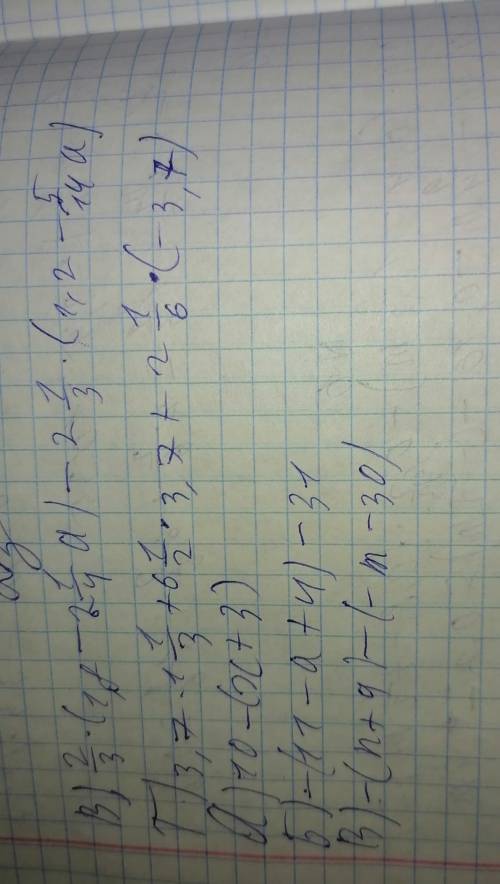 В) 2/3 · (1,8 - 2 1/4 a) - 2 1/3 · (1,2 - 5/14 a)
Г) 3,7 · 1 1/3 + 6 1/2 · 3,7 + 2 1/6 · (-3,7)
а) 10 - (x + 3)
Б) -(11 - a + 4) - 31
В) -(n + 9) - (- m - 30)